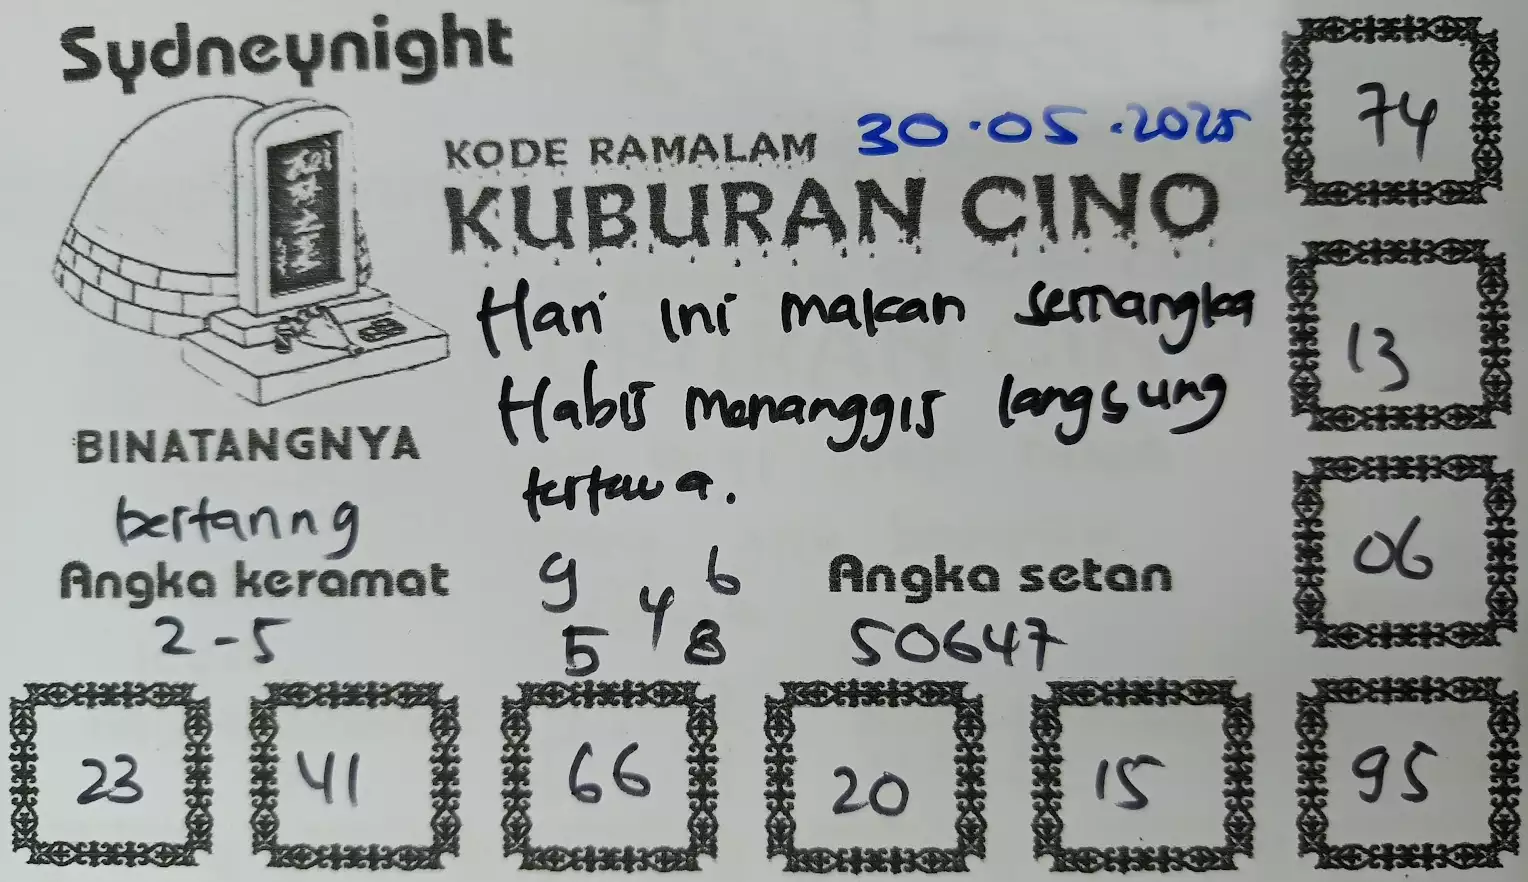 Sydneynight
KODE RAMALAM 30.05.2025
KUBURAN CINO
Hari ini makan semangka
Habis menanggis langsung
tertawa.
BINATANGNYA
bertanng
Angka keramat
2-5
9 6
4
5 8
Angka setan
50647
74
13
06
23 41 66 20 15 95